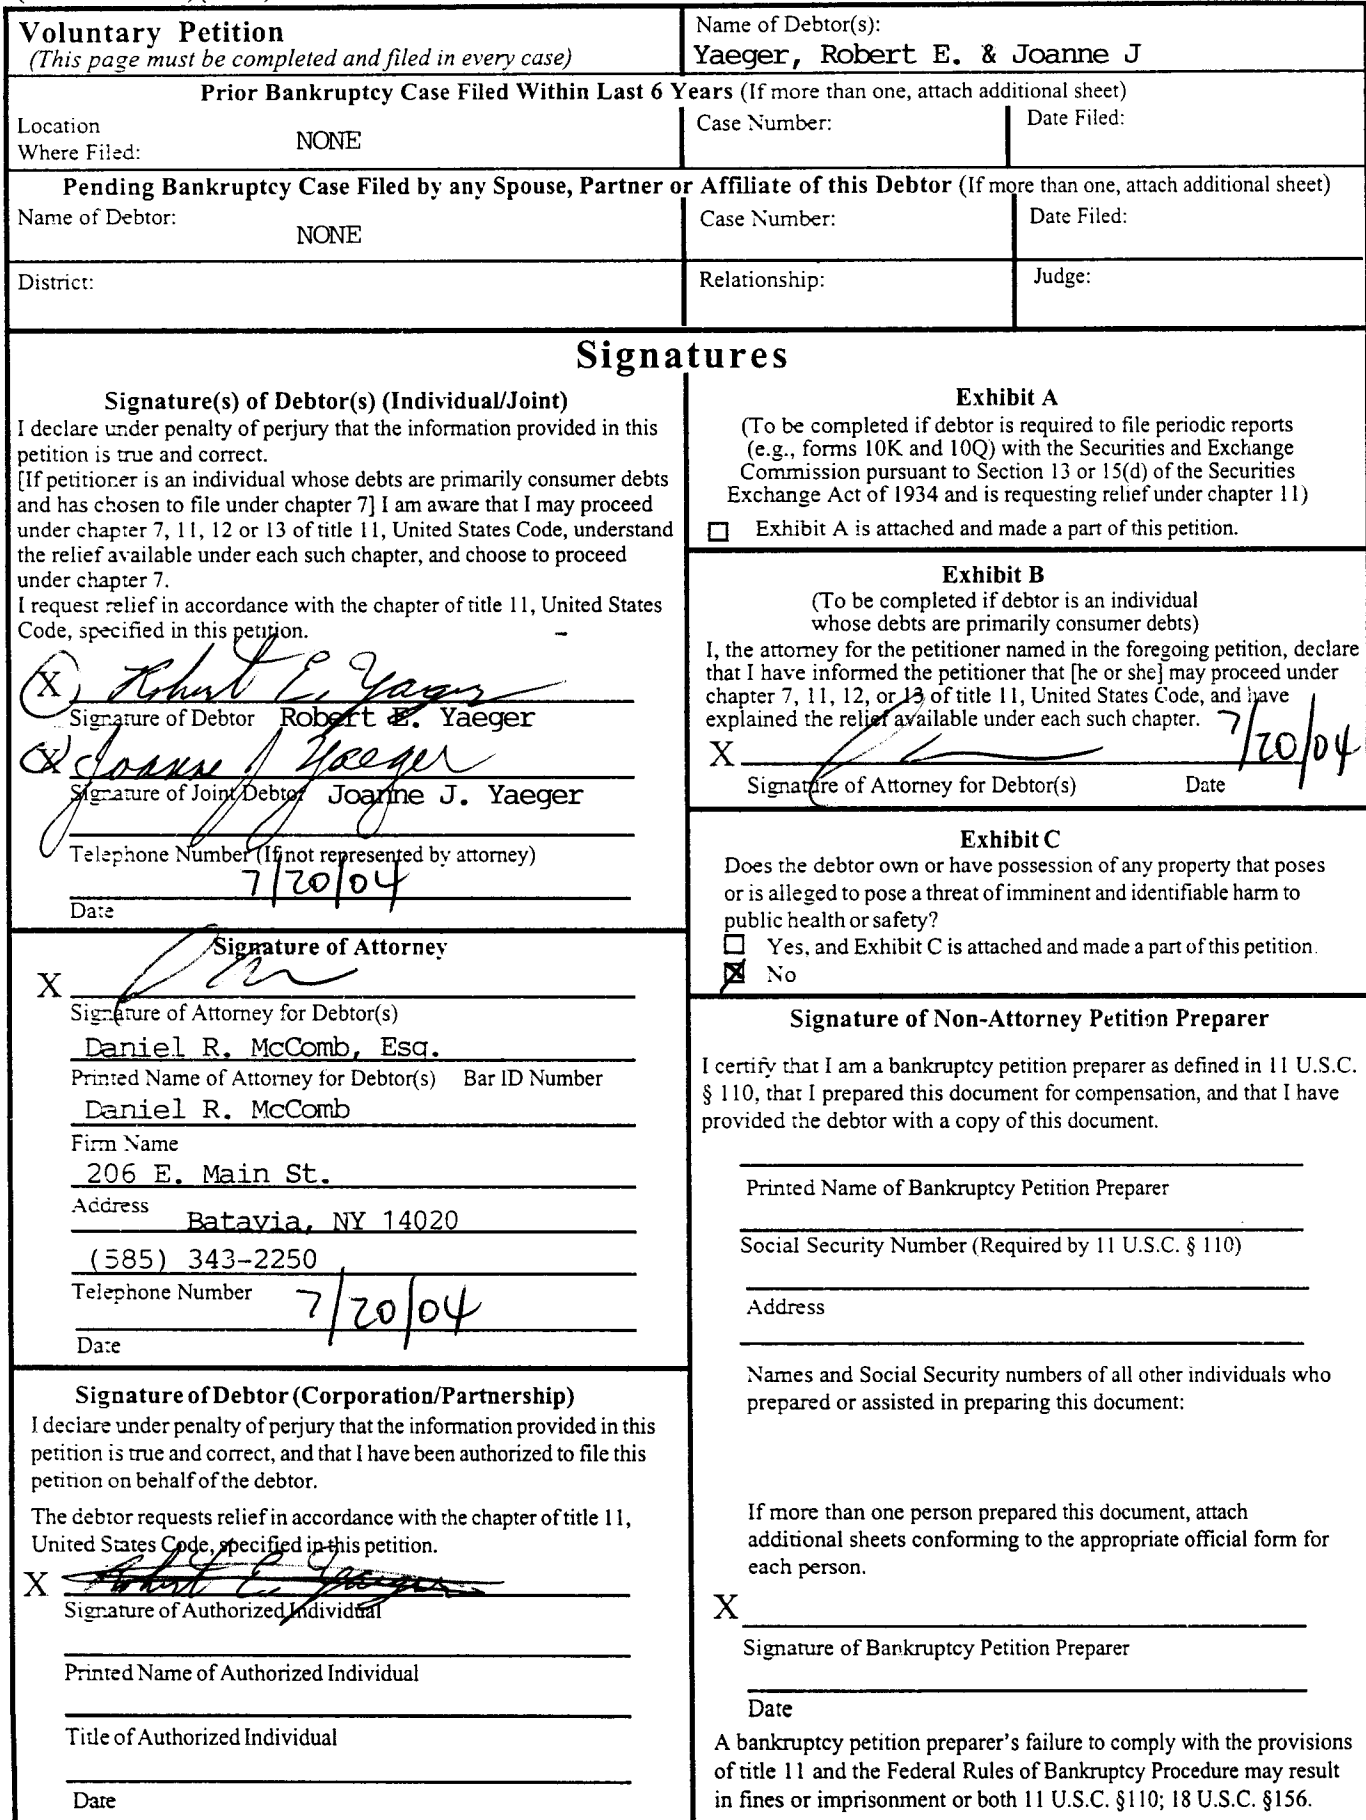 Voluntary Petition
(This page must be completed and filed in every case)
Name of Debtor(s):
Yaeger, Robert E. & Joanne J
Prior Bankruptcy Case Filed Within Last 6 Years (If more than one, attach additional sheet)
Location
Where Filed:
NONE
Case Number:
Date Filed:
Pending Bankruptcy Case Filed by any Spouse, Partner or Affiliate of this Debtor (If more than one, attach additional sheet)
Name of Debtor:
NONE
Case Number:
Date Filed:
District:
Relationship:
Judge:
Signatures
Signature(s) of Debtor(s) (Individual/Joint)
I declare under penalty of perjury that the information provided in this
petition is true and correct.
[If petitioner is an individual whose debts are primarily consumer debts
and has chosen to file under chapter 7] I am aware that I may proceed
under chapter 7, 11, 12 or 13 of title 11, United States Code, understand
the relief available under each such chapter, and choose to proceed
under chapter 7.
I request relief in accordance with the chapter of title 11, United States
Code, specified in this petition.
X Robert E. Yaeger
Signature of Debtor Robert E. Yaeger
X Joanne J Yaeger
Signature of Joint Debtor Joanne J. Yaeger
Telephone Number (If not represented by attorney)
7/20/04
Date
Signature of Attorney
X
Signature of Attorney for Debtor(s)
Daniel R. McComb, Esq.
Printed Name of Attorney for Debtor(s) Bar ID Number
Daniel R. McComb
Firm Name
206 E. Main St.
Address
Batavia, NY 14020
(585) 343-2250
Telephone Number
7/20/04
Date
Signature of Debtor (Corporation/Partnership)
I declare under penalty of perjury that the information provided in this
petition is true and correct, and that I have been authorized to file this
petition on behalf of the debtor.
The debtor requests relief in accordance with the chapter of title 11,
United States Code, specified in this petition.
X Robert E. Yaeger
Signature of Authorized Individual
Printed Name of Authorized Individual
Title of Authorized Individual
Date
Exhibit A
(To be completed if debtor is required to file periodic reports
(e.g., forms 10K and 10Q) with the Securities and Exchange
Commission pursuant to Section 13 or 15(d) of the Securities
Exchange Act of 1934 and is requesting relief under chapter 11)
Exhibit A is attached and made a part of this petition.
Exhibit B
(To be completed if debtor is an individual
whose debts are primarily consumer debts)
I, the attorney for the petitioner named in the foregoing petition, declare
that I have informed the petitioner that [he or she] may proceed under
chapter 7, 11, 12, or 13 of title 11, United States Code, and have
explained the relief available under each such chapter.
X 7/20/04
Signature of Attorney for Debtor(s) Date
Exhibit C
Does the debtor own or have possession of any property that poses
or is alleged to pose a threat of imminent and identifiable harm to
public health or safety?
Yes, and Exhibit C is attached and made a part of this petition.
No
Signature of Non-Attorney Petition Preparer
I certify that I am a bankruptcy petition preparer as defined in 11 U.S.C.
§ 110, that I prepared this document for compensation, and that I have
provided the debtor with a copy of this document.
Printed Name of Bankruptcy Petition Preparer
Social Security Number (Required by 11 U.S.C. § 110)
Address
Names and Social Security numbers of all other individuals who
prepared or assisted in preparing this document:
If more than one person prepared this document, attach
additional sheets conforming to the appropriate official form for
each person.
X
Signature of Bankruptcy Petition Preparer
Date
A bankruptcy petition preparer's failure to comply with the provisions
of title 11 and the Federal Rules of Bankruptcy Procedure may result
in fines or imprisonment or both 11 U.S.C. §110; 18 U.S.C. §156.